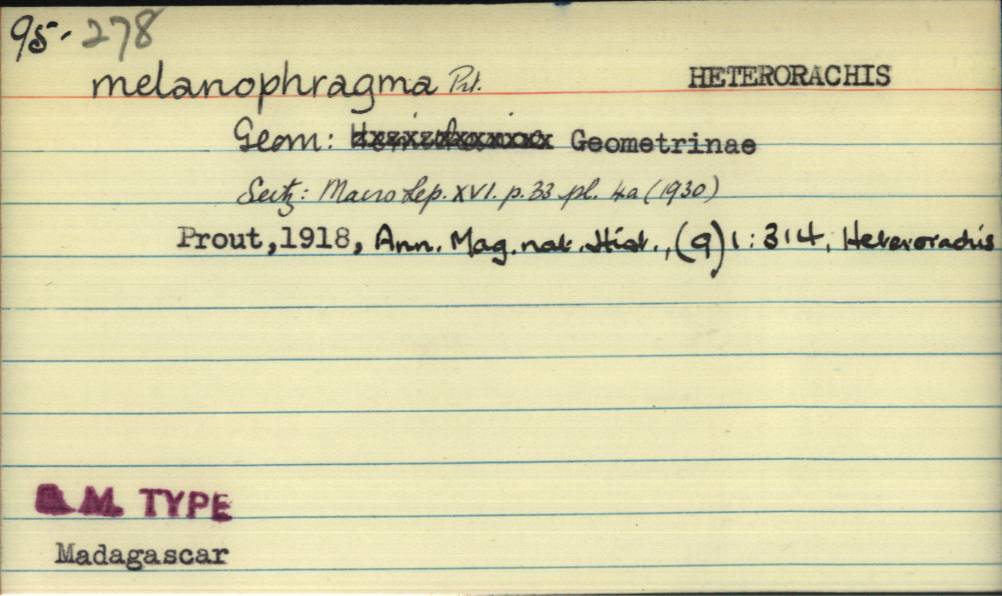 95. 278
melanophragma Prt. HETERORACHIS
Geom: Geometrinae
Seitz: Macro Lep. XVI. p. 33 pl. 4a (1930)
Prout, 1918, Ann. Mag. nat. Hist., (9) 1: 314, Heterorachis
B.M. TYPE
Madagascar